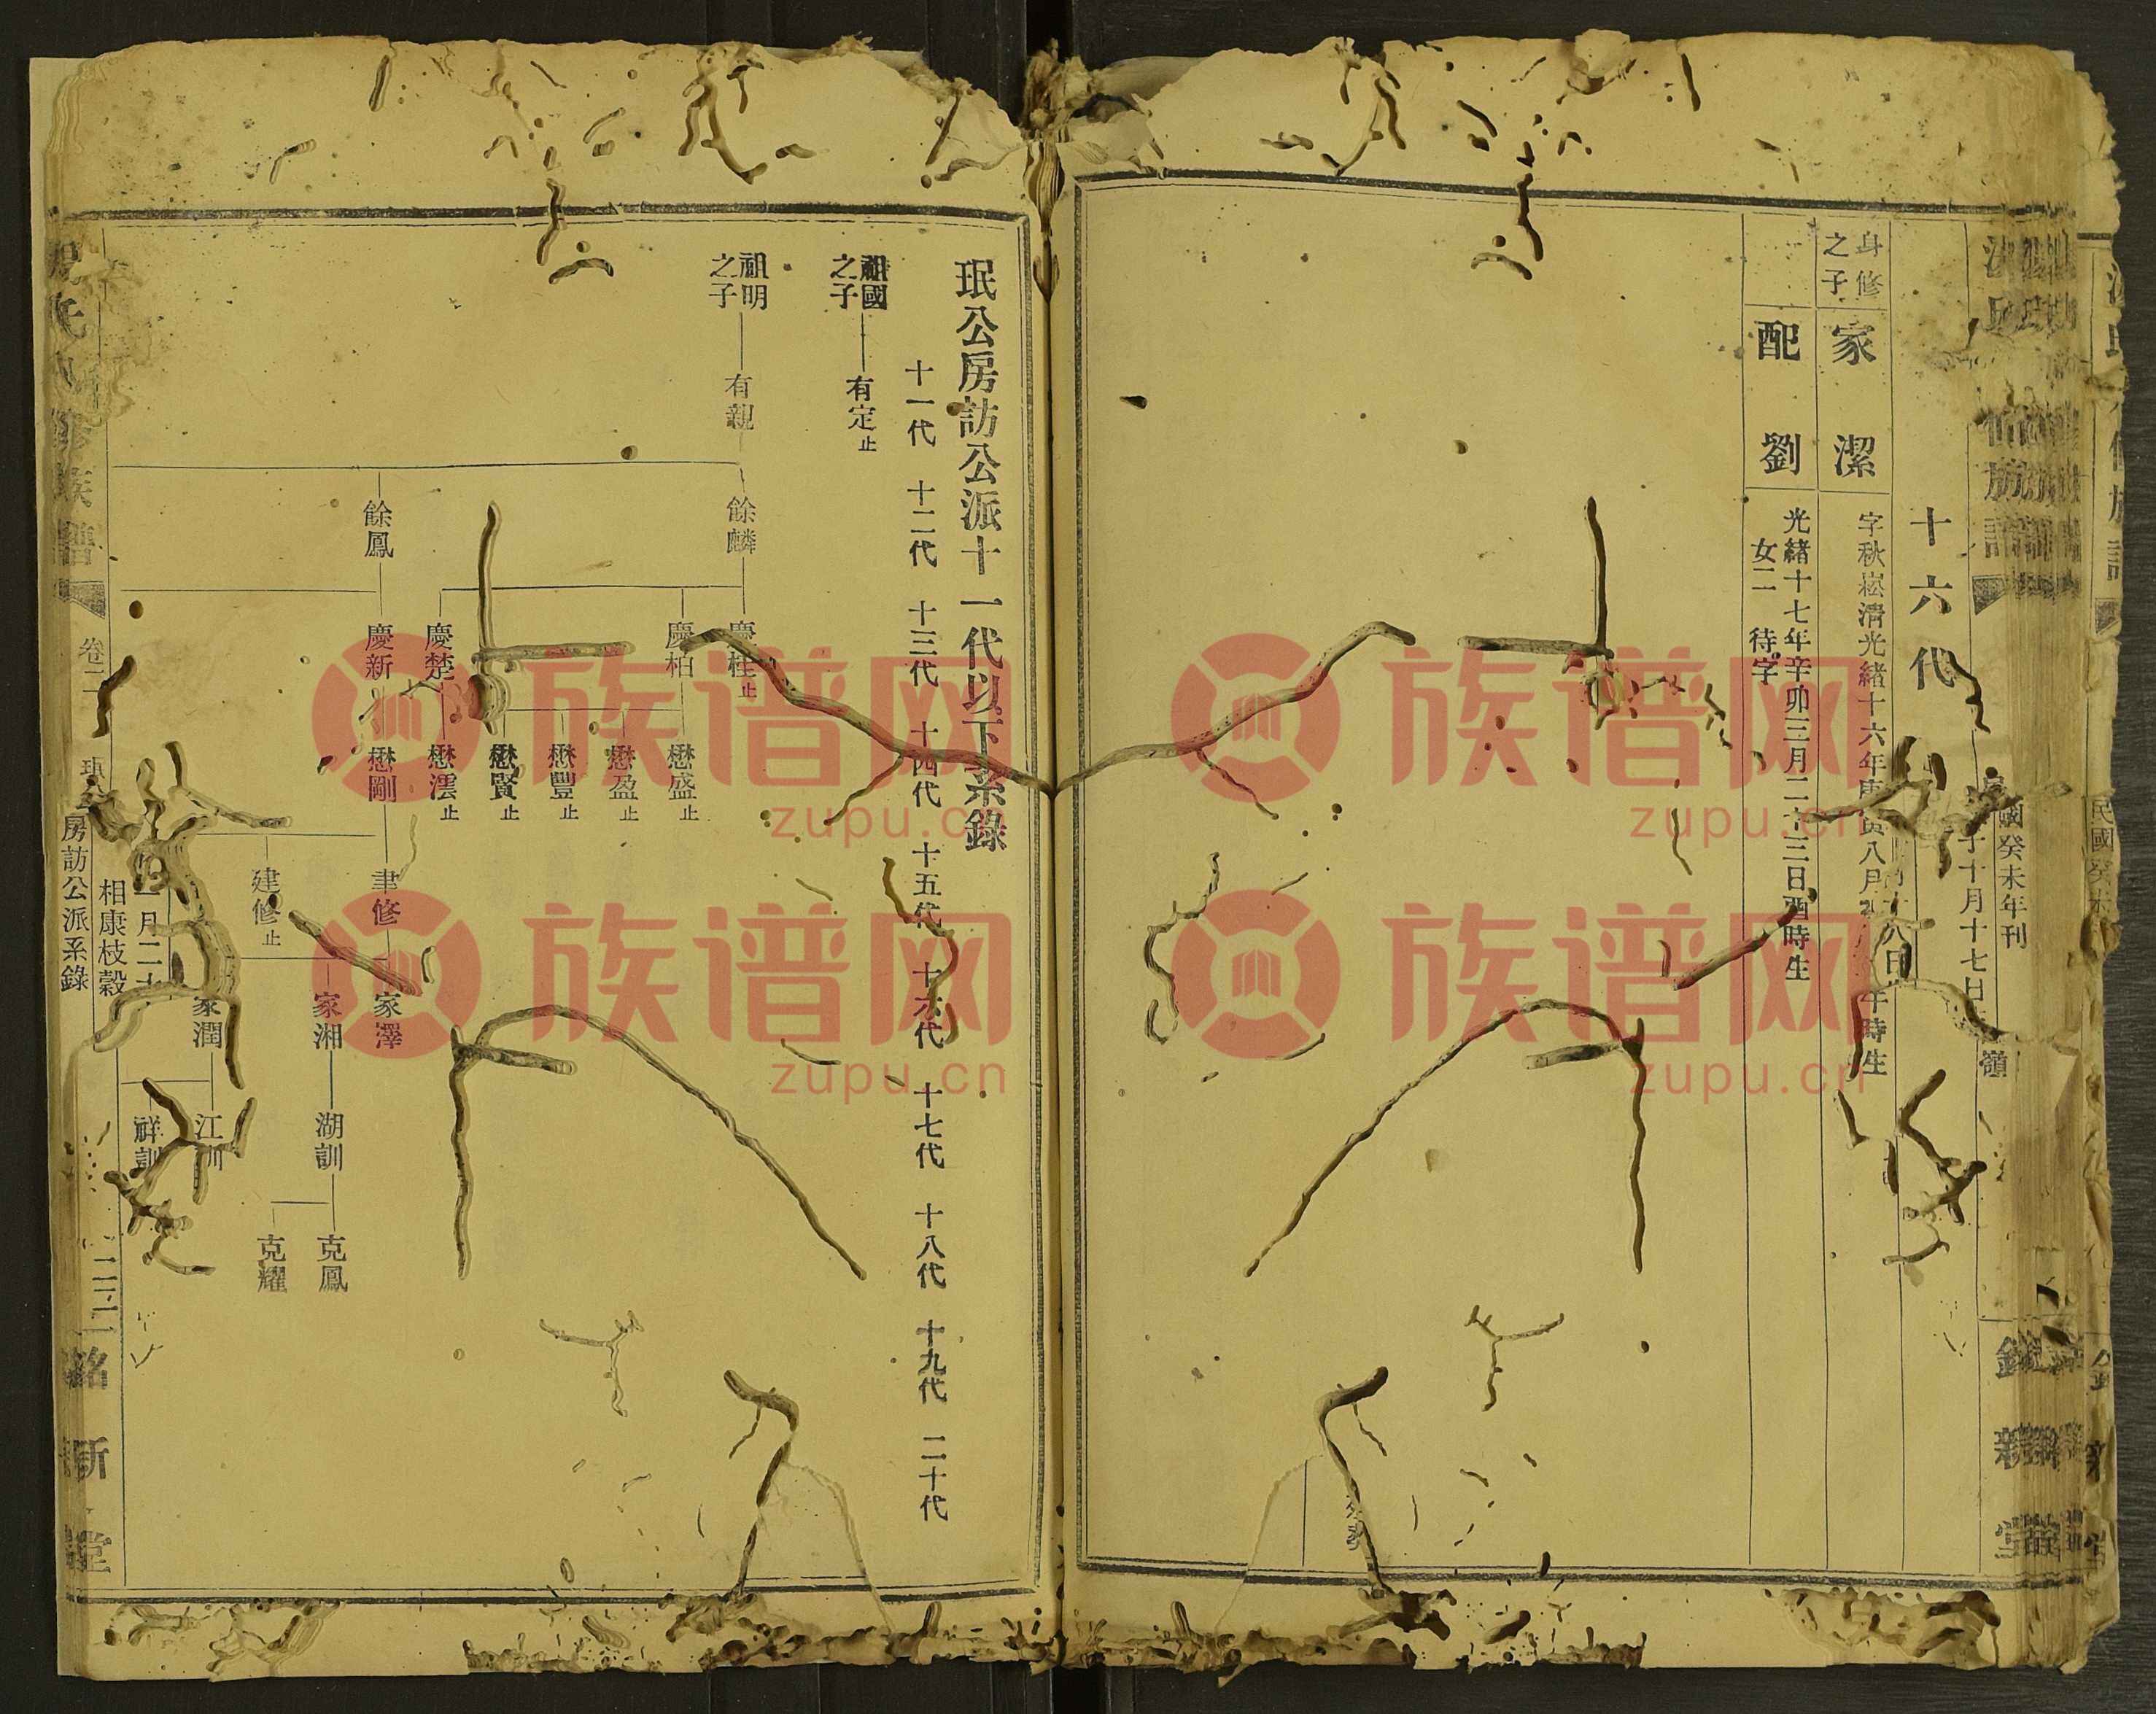 十六代
身修
之子
家潔
字秋崧清光緒十六年庚寅八月
午時生
配劉
光緒十七年辛卯三月二十三日酉時生
女二 待字
國癸未年刊
十月十七日
珉公房訪公派十一代以下系錄
十一代 十二代 十三代 十四代 十五代 十六代 十七代 十八代 十九代 二十代
祖國
之子
有定止
祖明
之子
有親
餘麟
餘鳳
慶桂止
慶柏
慶楚
慶新
懋盛止
懋盈止
懋豐止
懋賢止
懋澐止
懋剛
聿修
建修止
家澤
家湘
家潤
湖訓
江訓
祥訓
克鳳
克耀
相康枝穀
修族譜
卷二
房訪公派系錄
銘新堂
族谱网
zupu.cn
族谱网
zupu.cn
族谱网
zupu.cn
族谱网
zupu.cn